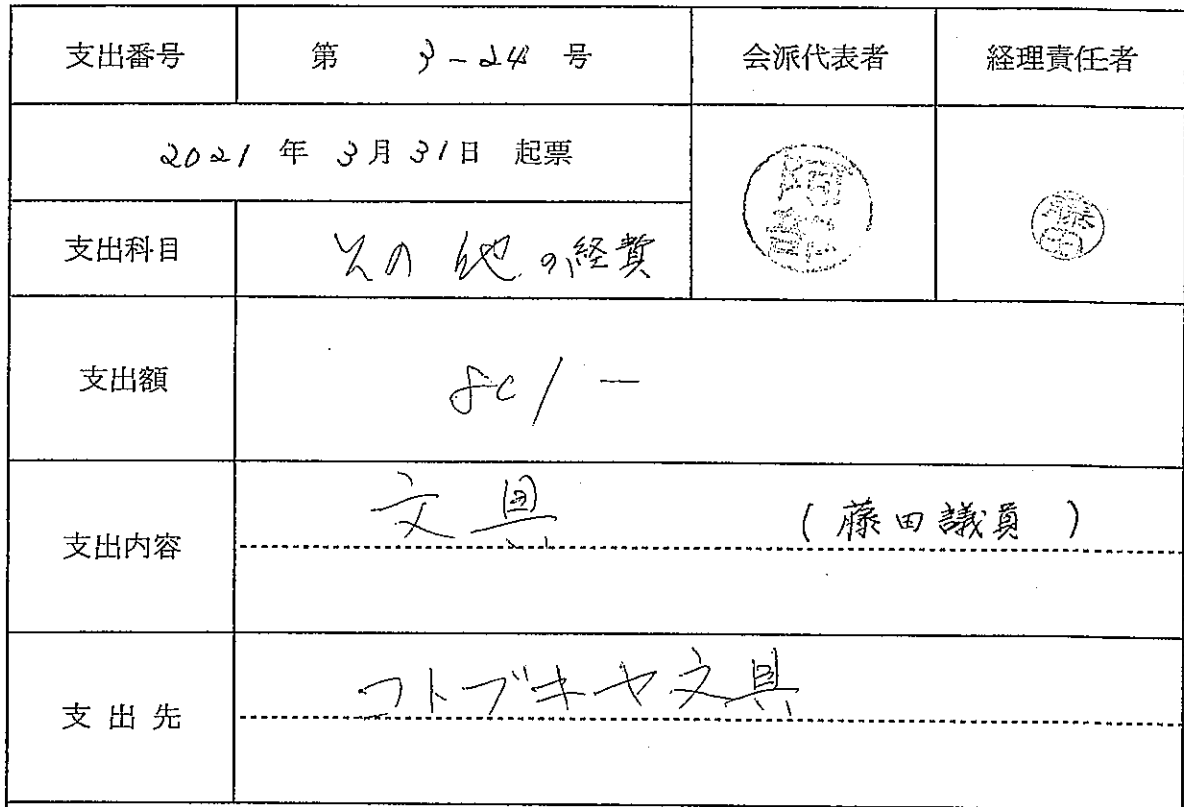 支出番号 第 3-24 号 会派代表者 経理責任者
2021 年 3月 31日 起票
阿部 藤田
支出科目 その他の経費
支出額 801 —
支出内容 文具 (藤田議員)
支出先 コトブキヤ文具